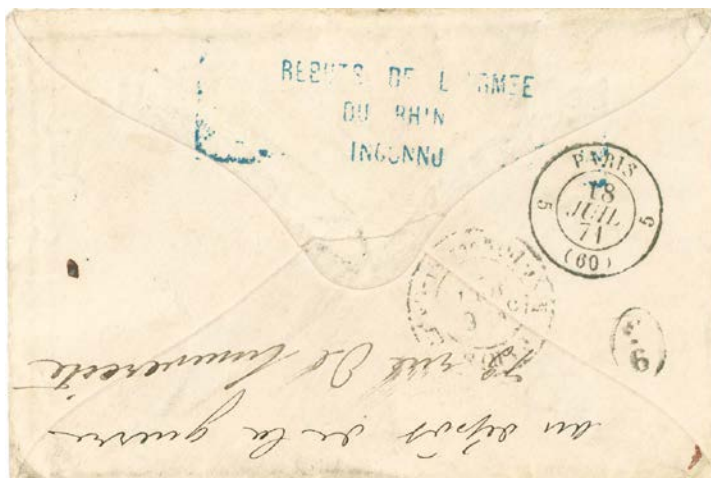 REBUTS DE L'ARMEE
DU RHIN
INCONNU
PARIS
5 18 5
JUIL
71
(60)
au dépôt de la guerre
rue de l'université